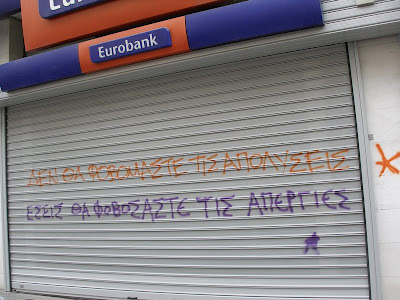 Eurobank
ΔΕΝ ΘΑ ΦΟΒΟΜΑΣΤΕ ΤΙΣ ΑΠΟΛΥΣΕΙΣ
ΕΣΕΙΣ ΘΑ ΦΟΒΟΣΑΣΤΕ ΤΙΣ ΑΠΕΡΓΙΕΣ